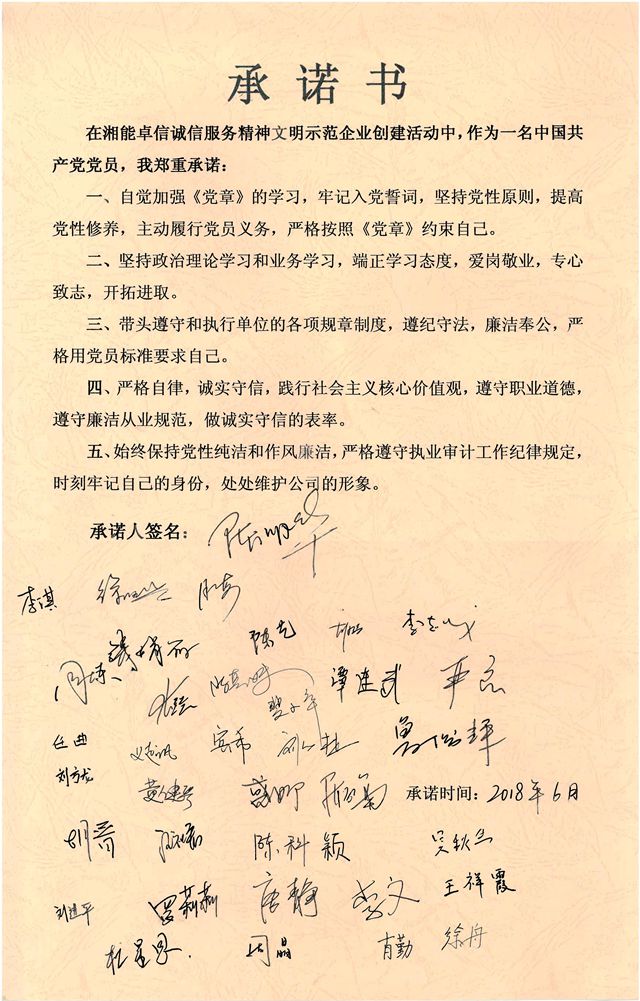 承诺书
在湘能卓信诚信服务精神文明示范企业创建活动中，作为一名中国共
产党党员，我郑重承诺：
一、自觉加强《党章》的学习，牢记入党誓词，坚持党性原则，提高
党性修养，主动履行党员义务，严格按照《党章》约束自己。
二、坚持政治理论学习和业务学习，端正学习态度，爱岗敬业，专心
致志，开拓进取。
三、带头遵守和执行单位的各项规章制度，遵纪守法，廉洁奉公，严
格用党员标准要求自己。
四、严格自律，诚实守信，践行社会主义核心价值观，遵守职业道德，
遵守廉洁从业规范，做诚实守信的表率。
五、始终保持党性纯洁和作风廉洁，严格遵守执业审计工作纪律规定，
时刻牢记自己的身份，处处维护公司的形象。
承诺人签名：
李淇
谭建武
刘方龙
承诺时间：2018年6月
陈科颖
罗莉莉 唐静 李文 王祥霞
周晶 肖勤 徐舟